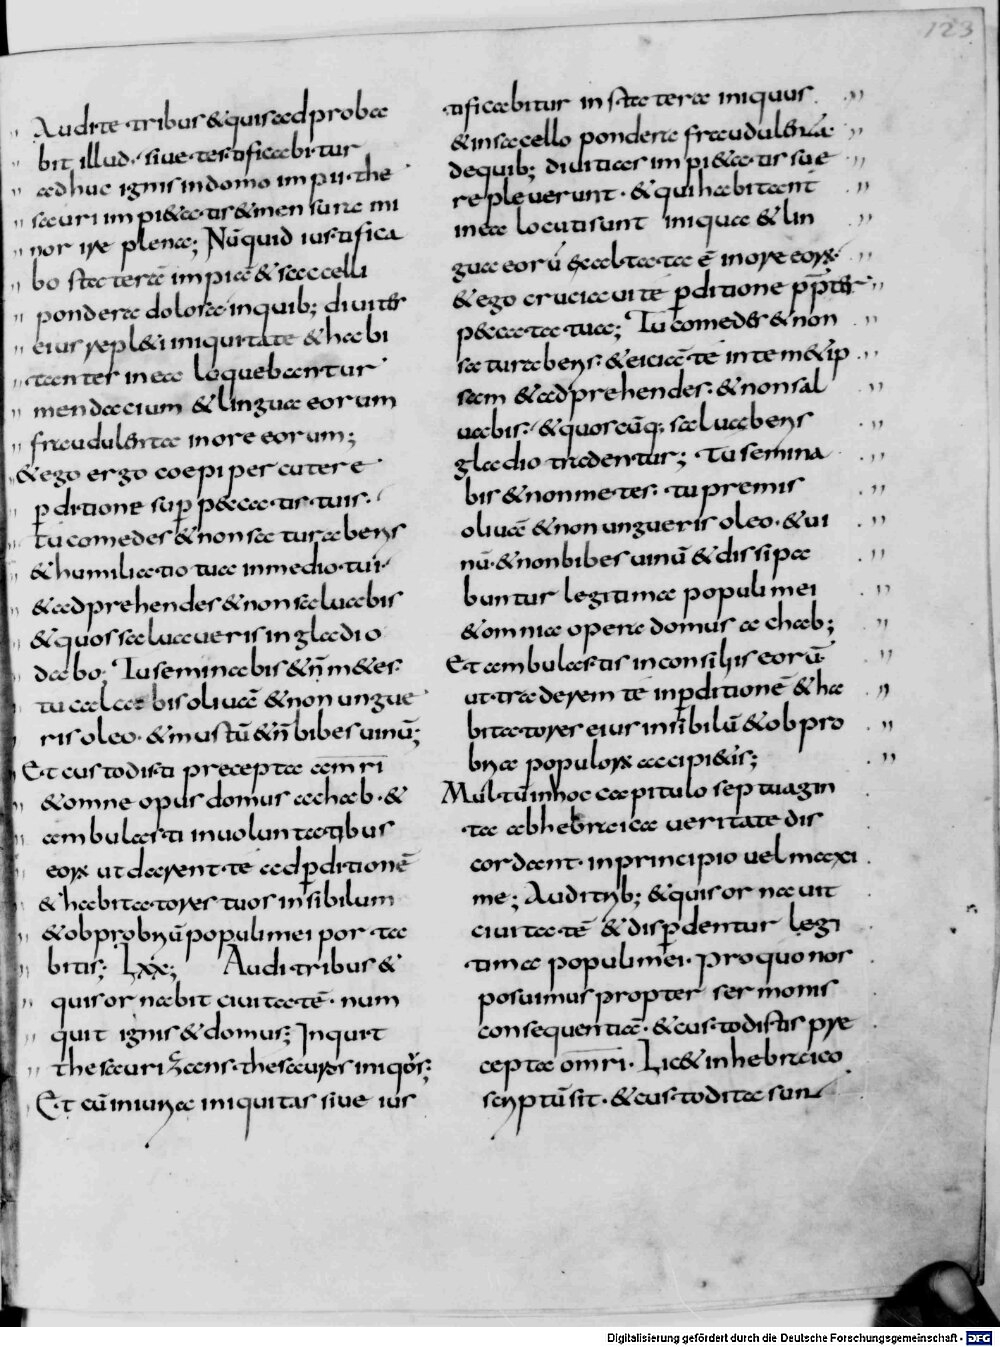 123
Audite tribus & quis adproba
bit illud. siue testificabitur
adhuc ignis in domo impii. the
sauri impi&atis & mensura mi
nor irae plena; Nūquid iustifica
bo statera impia & saccelli
pondera dolosa iniquib; diuites
eius repl&i iniquitate & habi
tantes in ea loquebantur
mendacium & lingua eorum
fraudulenta in ore eorum;
& ego ergo coepi percutere
p̱ditione sup̱ p&catis tuis.
tu comedes & non saturaberis
& humiliatio tua in medio tui.
& adprehendes & non saluabis
& quos saluaueris in gladio
dabo; Tu seminabis & n̄ m&es.
tu calcabis oliuā & non ungue
ris oleo. & mustū & n̄ bibes uinū;
Et custodisti precepta amri
& omne opus domus achab. &
ambulasti in uoluntatibus
eoꝝ ut darent te ad p̱ditionē
& habitatores tuos in sibilum
& obprobriū populi mei porta
bitis; Lxx; Audi tribus &
quis ornabit ciuitatē. num
quit ignis & domus; Inquit
thesaurizans. thesauros iniqos;
Et cū iniuria iniquitas siue ius
tificabitur in statera iniquus
& in sacello pondera fraudulenta
de quib; diuitias impi&atis sue
repleuerunt. & qui habitant
in ea locuti sunt iniqua & lin
gua eorū exaltata ē in ore eoꝝ.
& ego cruciaui te p̱ditione pp̄ter
p&cata tua; Tu comedes & non
saturaberis. & eiciā te in tem&ip
sam & adprehendes. & non sal
uabis. & quoscūq; saluaberis
gladio tradentur; Tu semina
bis & non metes. tu premis
oliuā & non ungueris oleo. & ui
nū. & non bibes uinū & dissipa
buntur legitima populi mei
& omnia opera domus achab;
Et ambulastis in consiliis eorū.
ut traderem te in p̱ditionē & ha
bitatores eius in sibilū & obpro
bria populoꝝ accipi&is;
Multū in hoc capitulo septuagin
ta ab hebraica ueritate dis
cordant. in principio uel maxi
me; Audi trib; & quis ornauit
ciuitatē & disp̱dentur legi
tima populi mei. Pro quo nos
posuimus propter sermonis
consequentiā. & custodistis pre
cepta omri. Lic& in hebraico
scriptū sit. & custodita sun
Digitalisierung gefördert durch die Deutsche Forschungsgemeinschaft - DFG